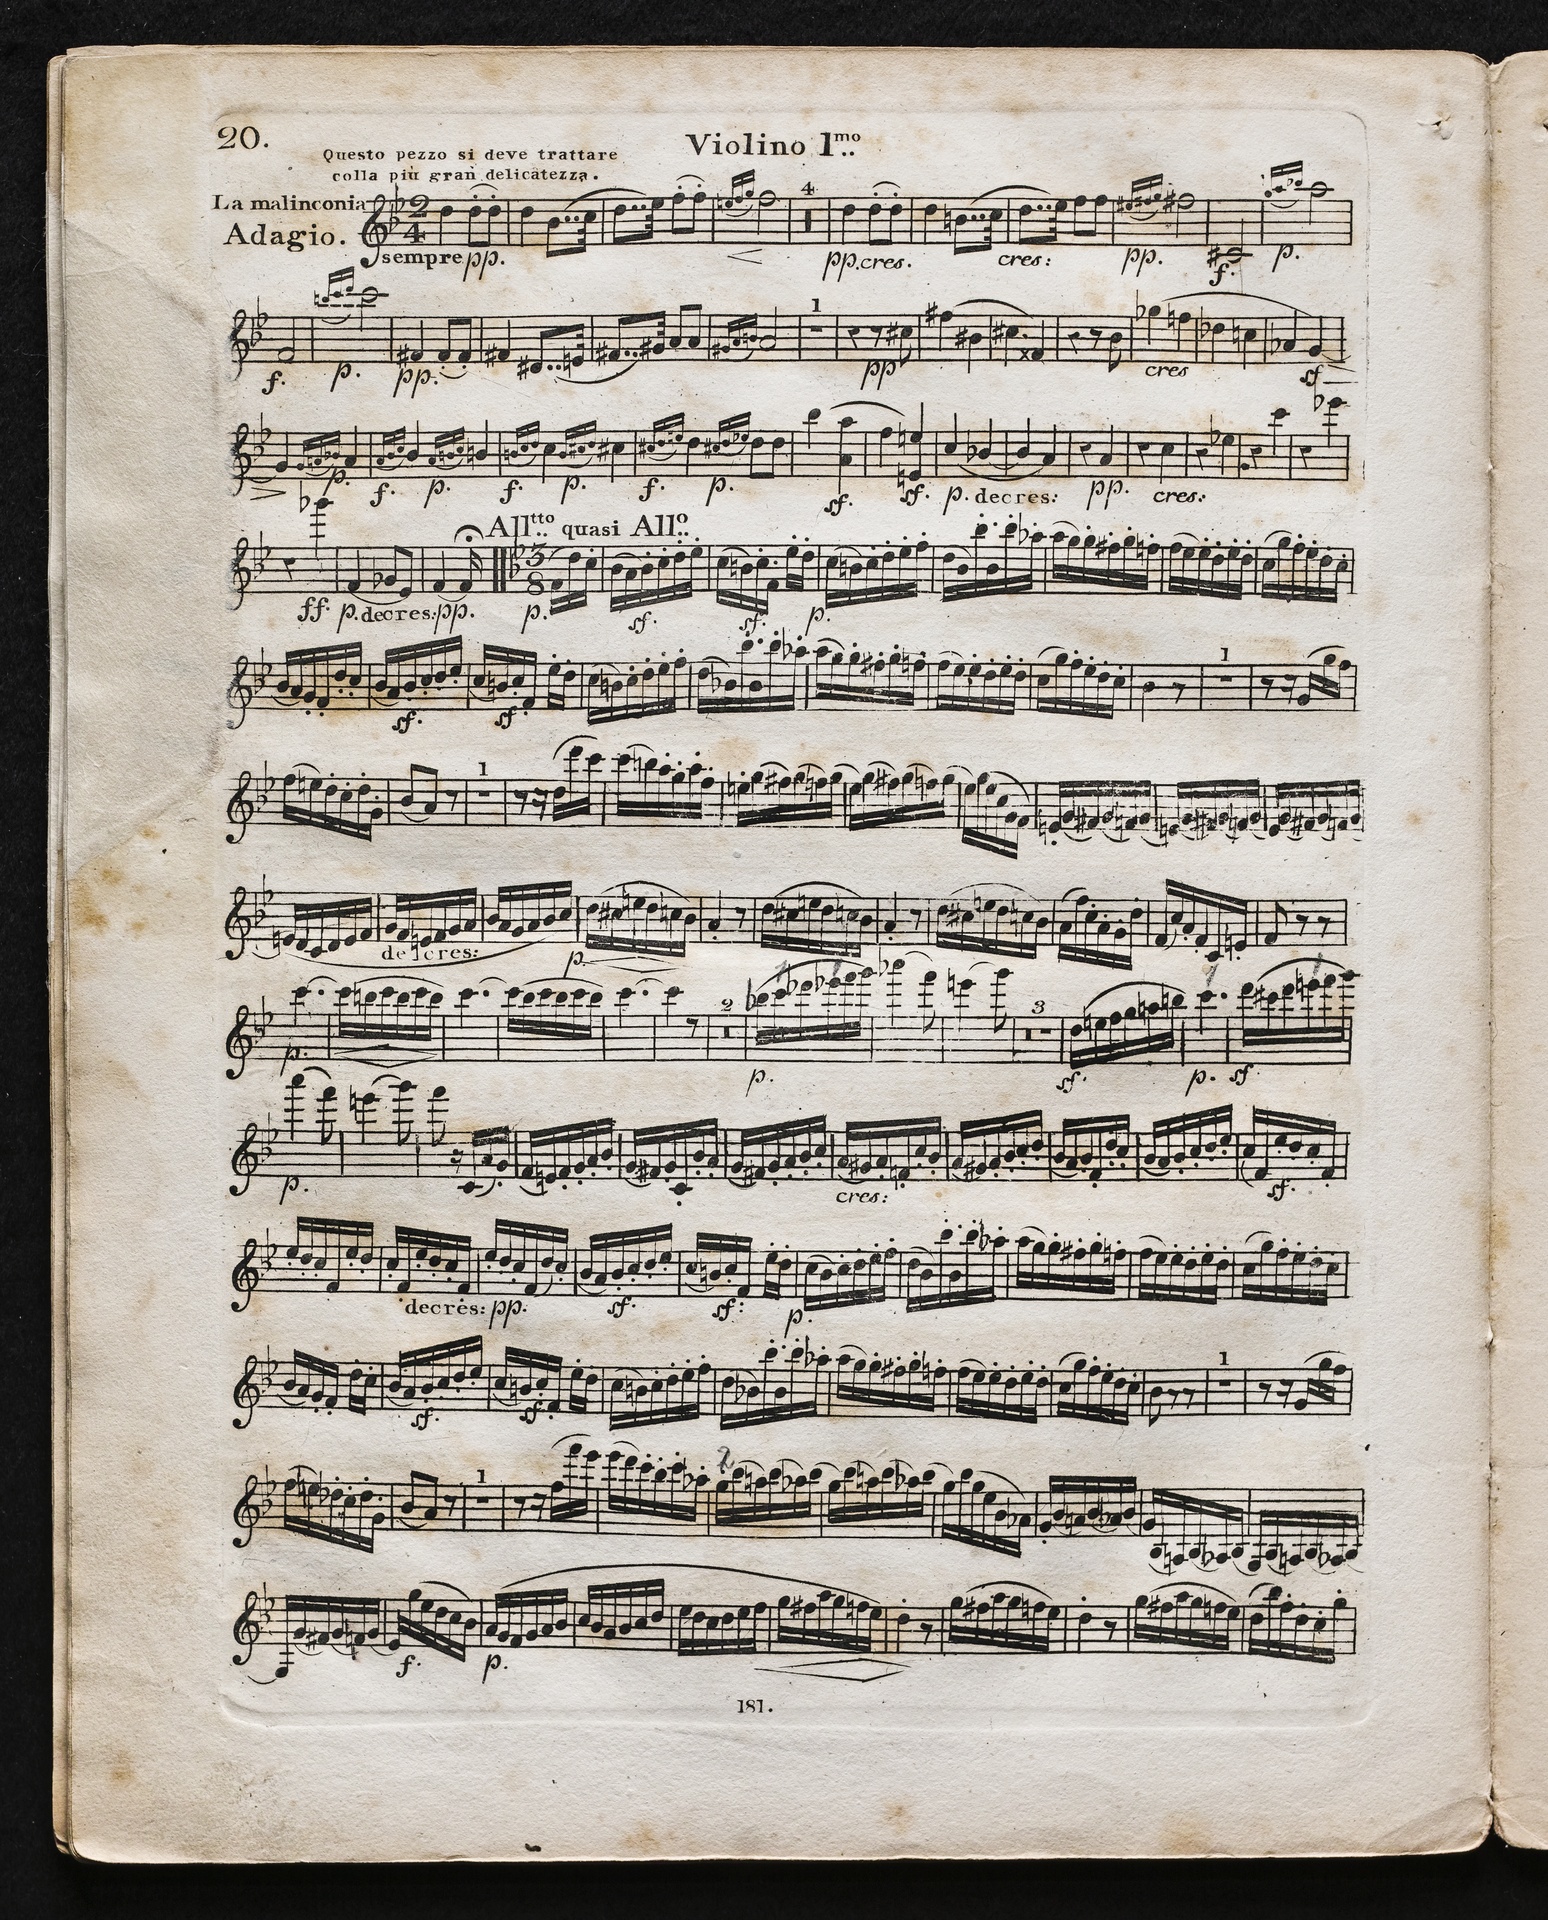 20.
Violino 1mo
Questo pezzo si deve trattare
colla più gran delicatezza.
La malinconia
Adagio.
4
sempre pp. pp. cres. cres: pp. f. p.
1
f. p. pp. pp cres sf
p. f. p. f. p. f. p. sf. sf. p. decres: pp. cres:
Alltto quasi Allo
ff. p. decres: pp. p. sf. sf. p.
1
sf. sf.
1
decres: p.
2 3
p. p. sf. p. sf.
p. cres: sf.
decres: pp. sf. sf: p.
1
sf. sf.
2
1
f. p.
181.